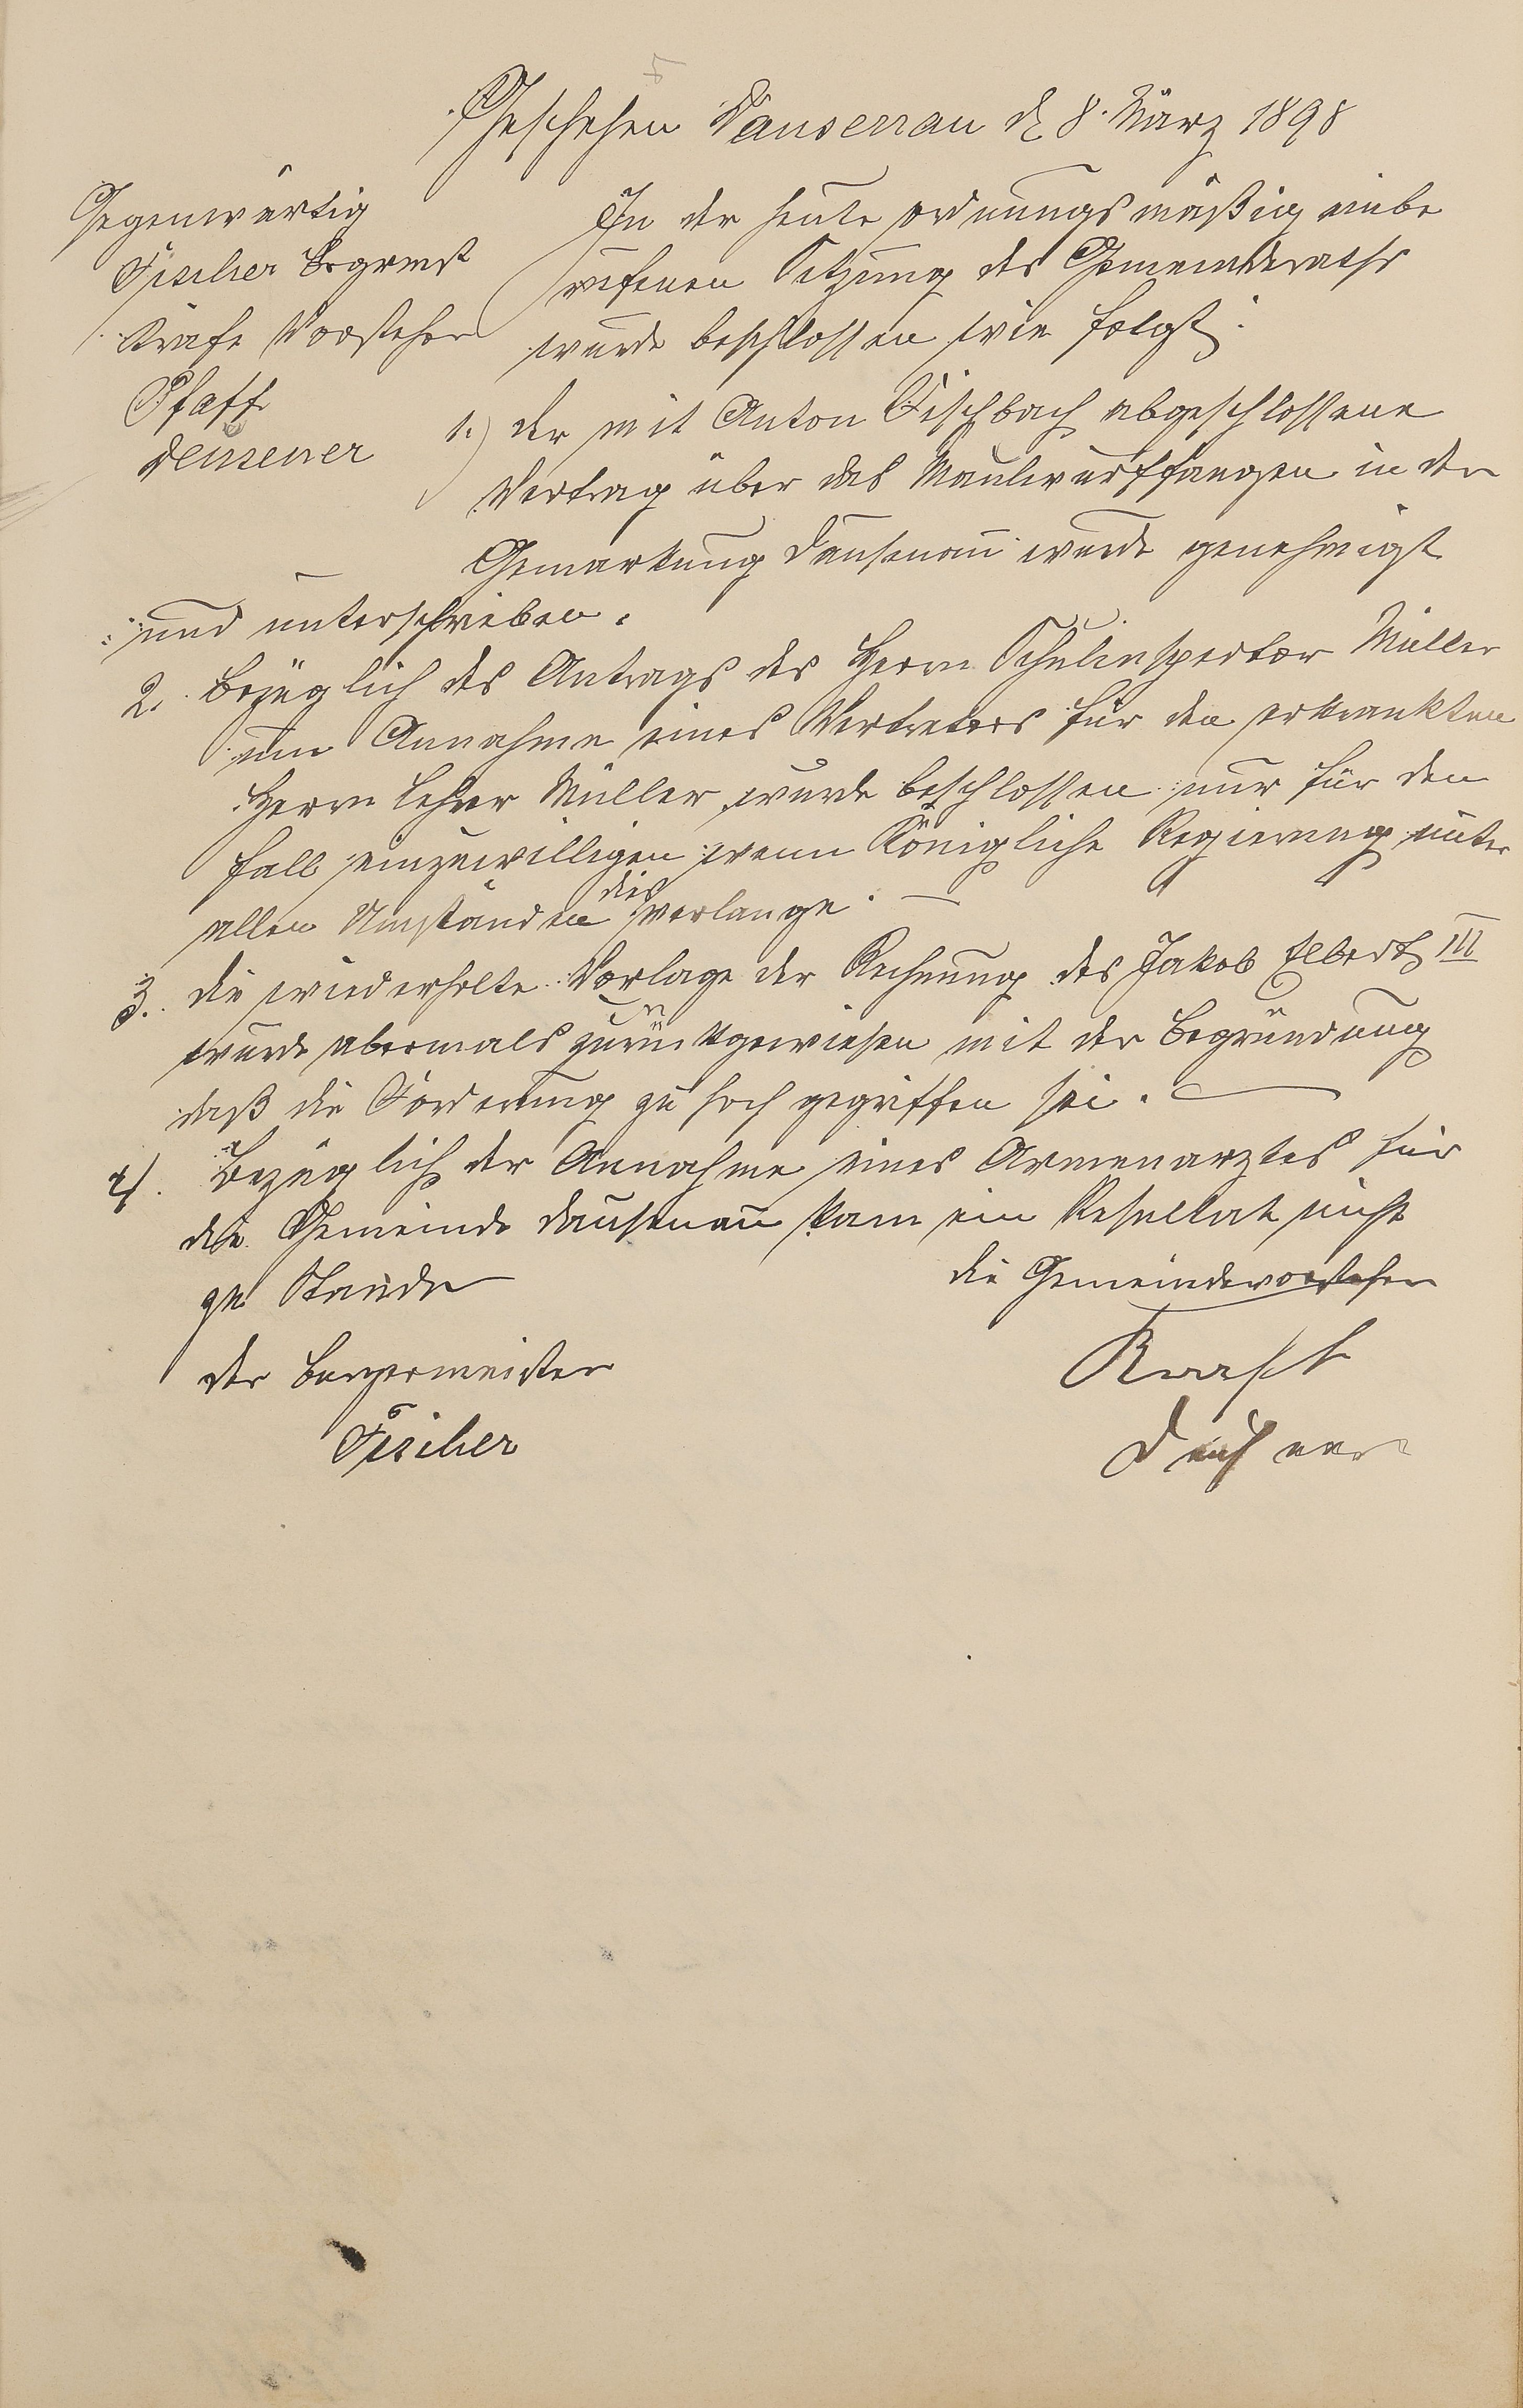 Geschehen Dausenau d 8. März 1898
Gegenwärtig
Fischer Bgrmst
Vorsteher
Pfaff
Deusener
In der heute ordnungsmäßig einbe
rufenen Sitzung des Gemeinderaths
wurde beschlossen wie folgt:
1.) der mit Anton Fischbach abgeschlossene
Vertrag über das Maulwurffangen in der
Gemarkung Dausenau wurde genehmigt
und unterschrieben.
2. Bezüglich des Antrags des Herrn Schulinspector Müller
um Annahme eines Vertreters für den erkrankten
Herrn Lehrer Müller wurde beschlossen nur für den
Fall einzuwilligen wenn Königliche Regierung unter
allen Umständen dies verlange. —
3. die wiederholte Vorlage der Rechnung des Jakob Elbert III
wurde abermals zurückgewiesen mit der Begründung
daß die Forderung zu hoch gegriffen sei. —
4. Bezüglich der Annahme eines Armenarztes für
die Gemeinde Dausenau kam ein Resultat nicht
zu Stande
die Gemeindevorsteher
der Burgermeister
Fischer